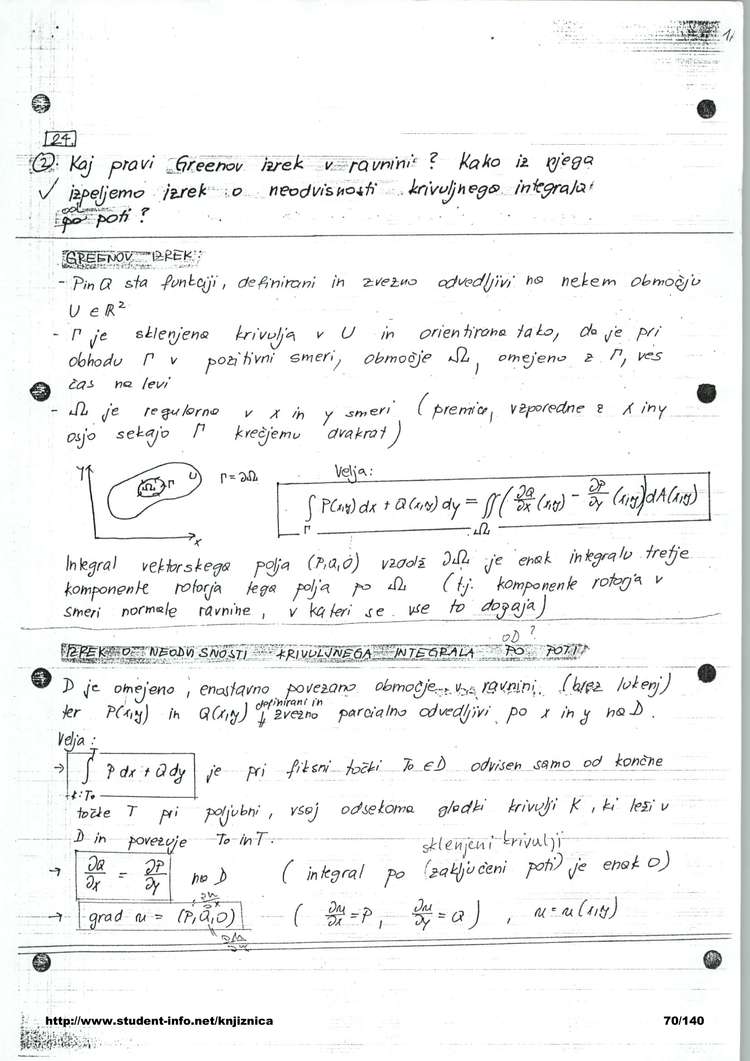 1.
24.
2. Kaj pravi Greenov izrek v ravnini? Kako iz njega
✓ izpeljemo izrek o neodvisnosti krivuljnega integrala
od
po poti?
GREENOV IZREK:
- P in Q sta funkciji, definirani in zvezno odvedljivi na nekem območju
U ∈ R²
- Γ je sklenjena krivulja v U in orientirana tako, da je pri
obhodu Γ v pozitivni smeri, območje Ω, omejeno z Γ, ves
čas na levi
- Ω je regularno v x in y smeri (premice, vzporedne z x in y
osjo sekajo Γ kvečjemu dvakrat)
y Ω Γ U Γ = ∂Ω x
Velja:
∫_Γ P(x,y) dx + Q(x,y) dy = ∬_Ω (∂Q/∂x (x,y) - ∂P/∂y (x,y)) dA(x,y)
Integral vektorskega polja (P,Q,0) vzdolž ∂Ω je enak integralu tretje
komponente rotorja tega polja po Ω (tj. komponente rotorja v
smeri normale ravnine, v kateri se vse to dogaja)
OD?
IZREK O NEODVISNOSTI KRIVULJNEGA INTEGRALA PO POTI
D je omejeno, enostavno povezano območje v ravnini (brez lukenj)
definirani in
ter P(x,y) in Q(x,y) ↓ zvezno parcialno odvedljivi po x in y na D.
Velja:
→ ∫ P dx + Q dy je pri fiksni točki T₀ ∈ D odvisen samo od končne
T
k: T₀
točke T pri poljubni, vsaj odsekoma gladki krivulji K, ki leži v
D in povezuje T₀ in T.
sklenjeni krivulji
→ ∂Q/∂x = ∂P/∂y na D (integral po (zaključeni poti) je enak 0)
∂u/∂x
→ grad u = (P,Q,0) (∂u/∂x = P, ∂u/∂y = Q), u = u(x,y)
http://www.student-info.net/knjiznica 70/140